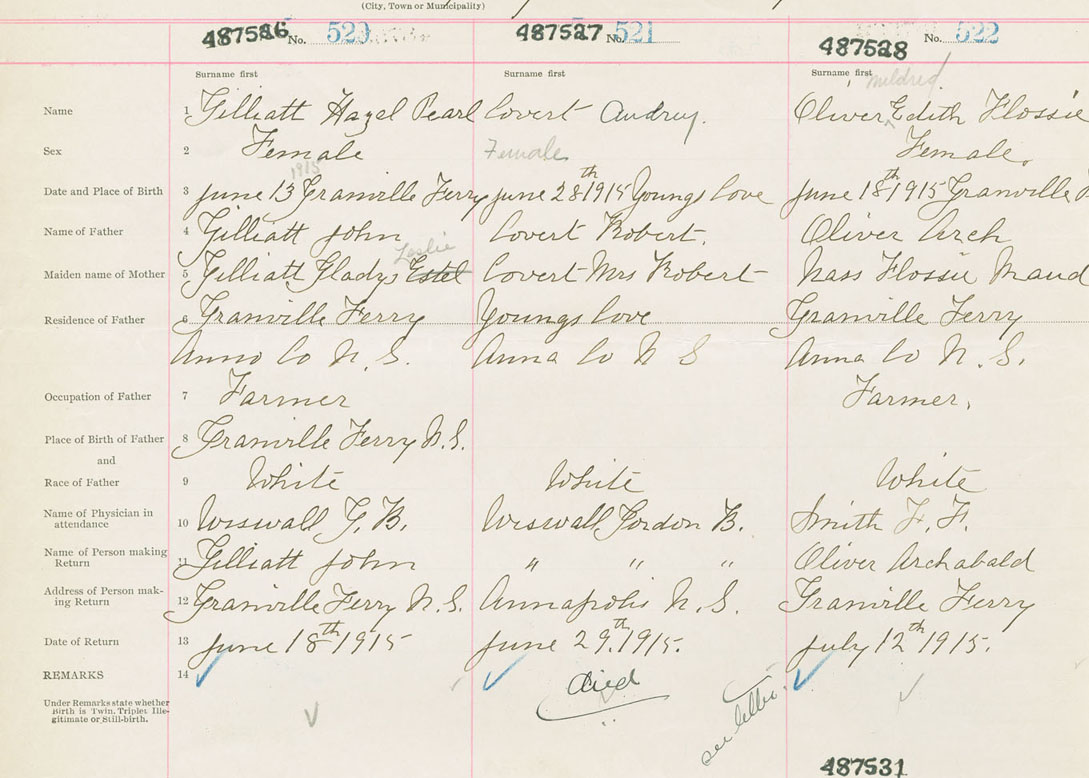 (City, Town or Municipality)
487526 No. 520 487527 No. 521 487528 No. 522
Surname first Surname first Surname first
Mildred
Name 1 Gilliatt Hazel Pearl Covert Audrey. Oliver Edith Flossie
Sex 2 Female Female Female.
1915
Date and Place of Birth 3 June 13 Granville Ferry June 28th 1915 Youngs Cove June 18th 1915 Granville
Name of Father 4 Gilliatt John Covert Robert. Oliver Arch
Leslie
Maiden name of Mother 5 Gilliatt Gladys Estel Covert Mrs Robert Nass Flossie Maud
Residence of Father 6 Granville Ferry Youngs Cove Granville Ferry
Anna Co N. S. Anna Co N S Anna Co N. S.
Occupation of Father 7 Farmer Farmer.
Place of Birth of Father 8 Granville Ferry N.S.
and
Race of Father 9 White White White
Name of Physician in
attendance 10 Wiswall G. B. Wiswall Gordon B. Smith F. F.
Name of Person making
Return 11 Gilliatt John " " " Oliver Archabald
Address of Person mak-
ing Return 12 Granville Ferry N.S. Annapolis N.S. Granville Ferry
Date of Return 13 June 18th 1915 June 29th. 1915. July 12th 1915.
REMARKS 14 died
see letter.
Under Remarks state whether
Birth is Twin. Triplet Ille-
gitimate or Still-birth.
487531